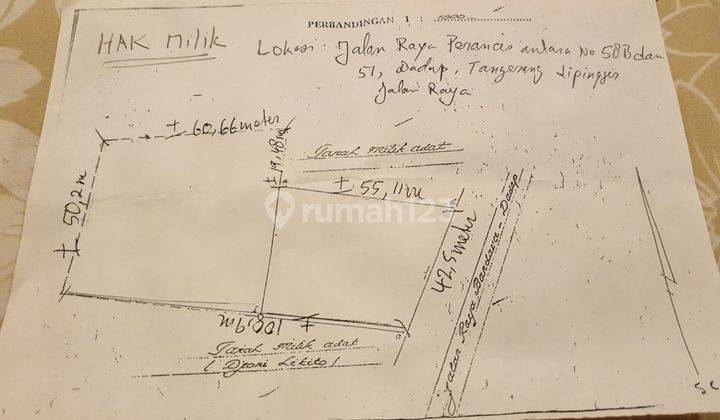 PERBANDINGAN 1 : 1000
HAK Milik
Lokasi : Jalan Raya Perancis antara No 58B dan
51, Dadap, Tangerang dipinggir
Jalan Raya
± 60,66 meter
± 19,48 m
Tanah milik adat
± 55,11 m
± 50,2 m
rumah123
42,5 meter
Jalan Raya Bandara - Dadap
± 100,9 m
Tanah milik adat
( Djoni Likito )